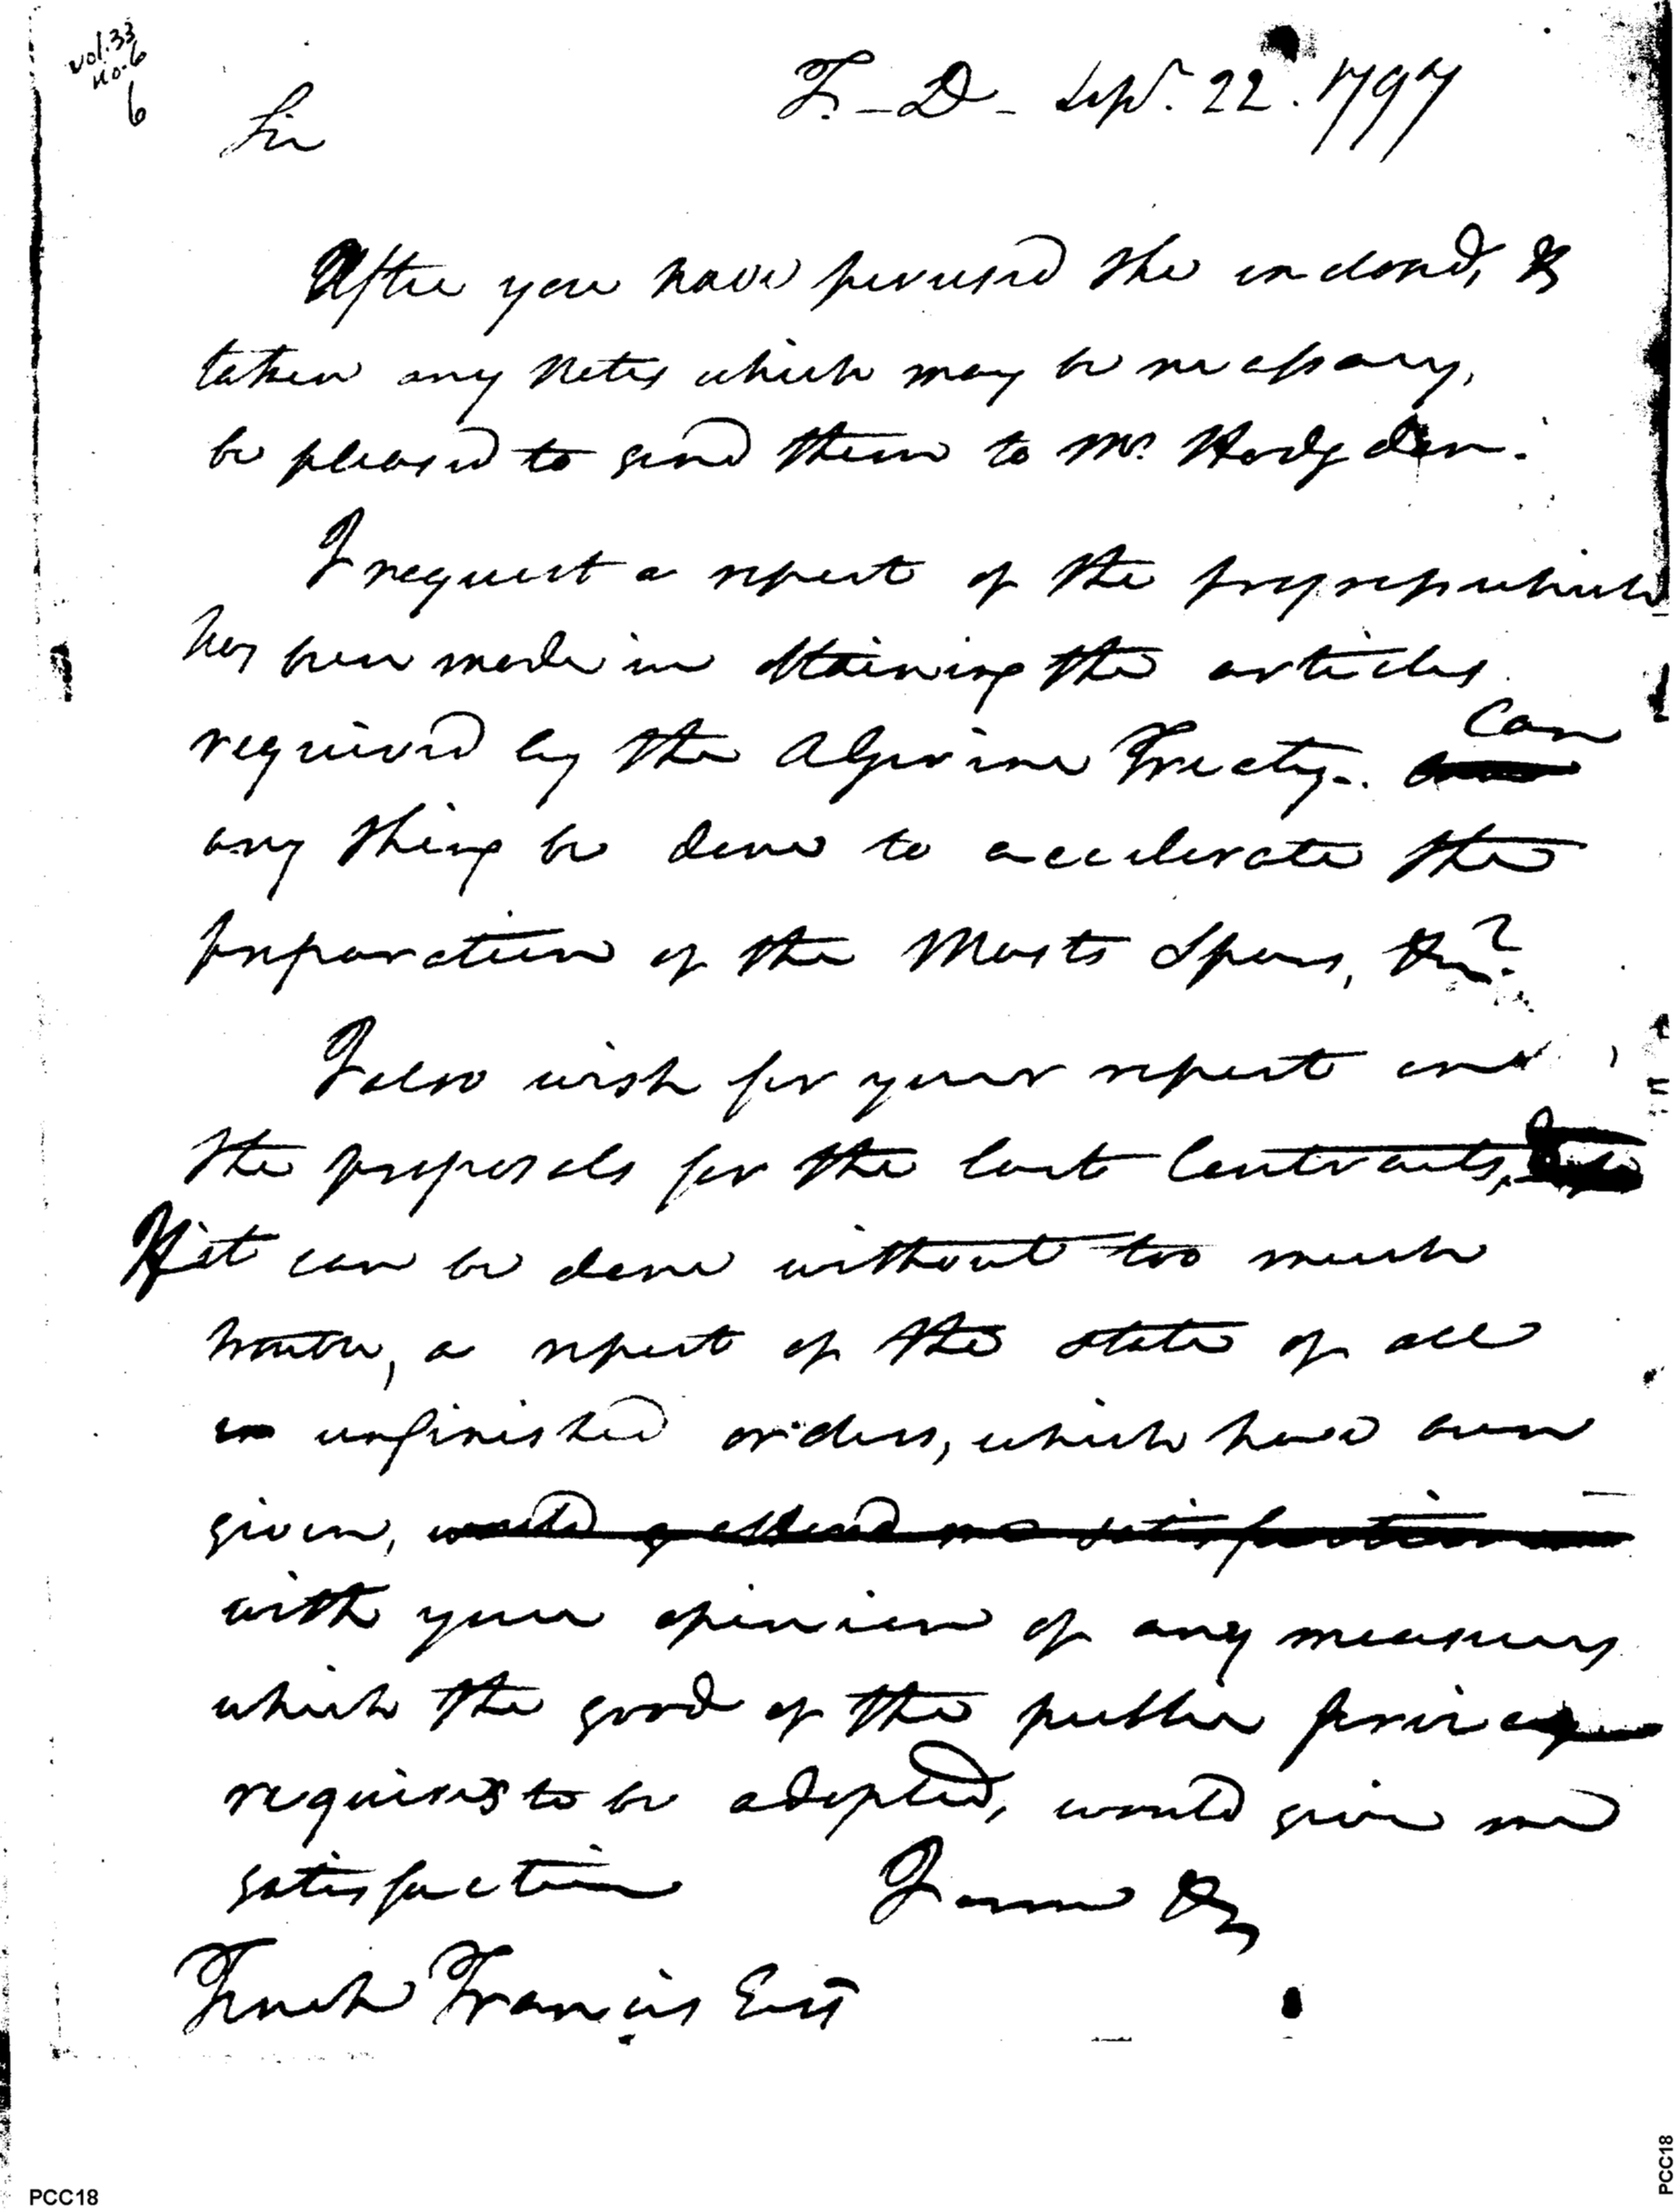 vol. 33
No. 6
6
T. - D - Sepr. 22. 1797
Sir
After you have perused the inclosed, &
taken any Notes which may be necessary,
be pleased to send them to Mr. Hodgdon.
I request a report of the progress which
has been made in obtaining the articles
required by the Algerine Treaty. Can
any thing be done to accelerate the
preparation of the Masts Spars, &c?
I also wish for your report on
the proposals for the last Contracts,
If it can be done without too much
trouble, a report of the state of all
unfinished orders, which have been
given, would afford me satisfaction
with your opinion of any measures
which the good of the public service
requires to be adopted, would give me
satisfaction I am &c
Tench Francis Esq
PCC18
PCC18